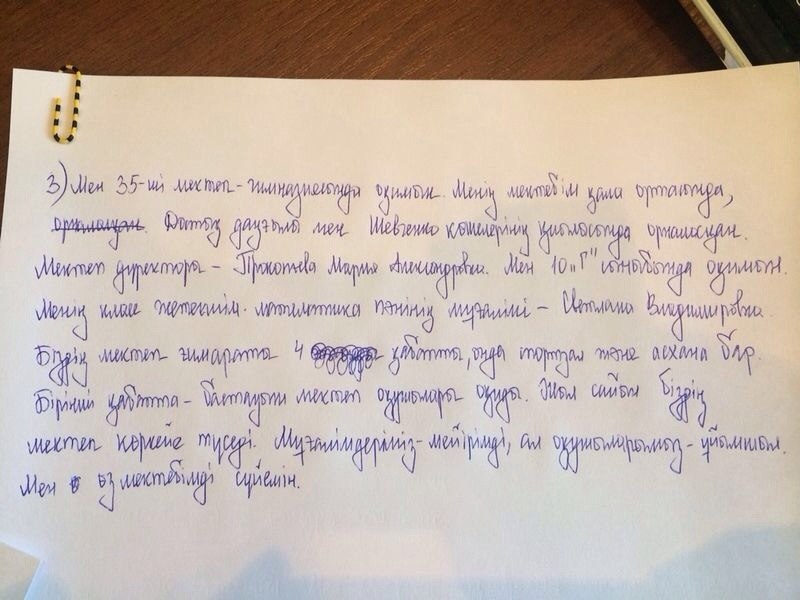 3) Мен 35-ші мектеп-гимназиясында оқимын. Менің мектебім қала ортасында,
орналасқан. Достық даңғылы мен Шевченко көшелерінің қиылысында орналасқан.
Мектеп директоры – Прокопьева Мария Александровна. Мен 10 „Г" сыныбында оқимын.
Менің класс жетекшім - математика пәнінің мұғалімі – Светлана Владимировна.
Біздің мектеп ғимараты 4 қабатты, онда портзал және асхана бар.
Бірінші қабатта – бастауыш мектеп оқушылары оқиды. Жыл сайын біздің
мектеп көркейе түседі. Мұғалімдеріміз - мейірімді, ал оқушыларымыз - ұйымшыл.
Мен өз мектебімді сүйемін.